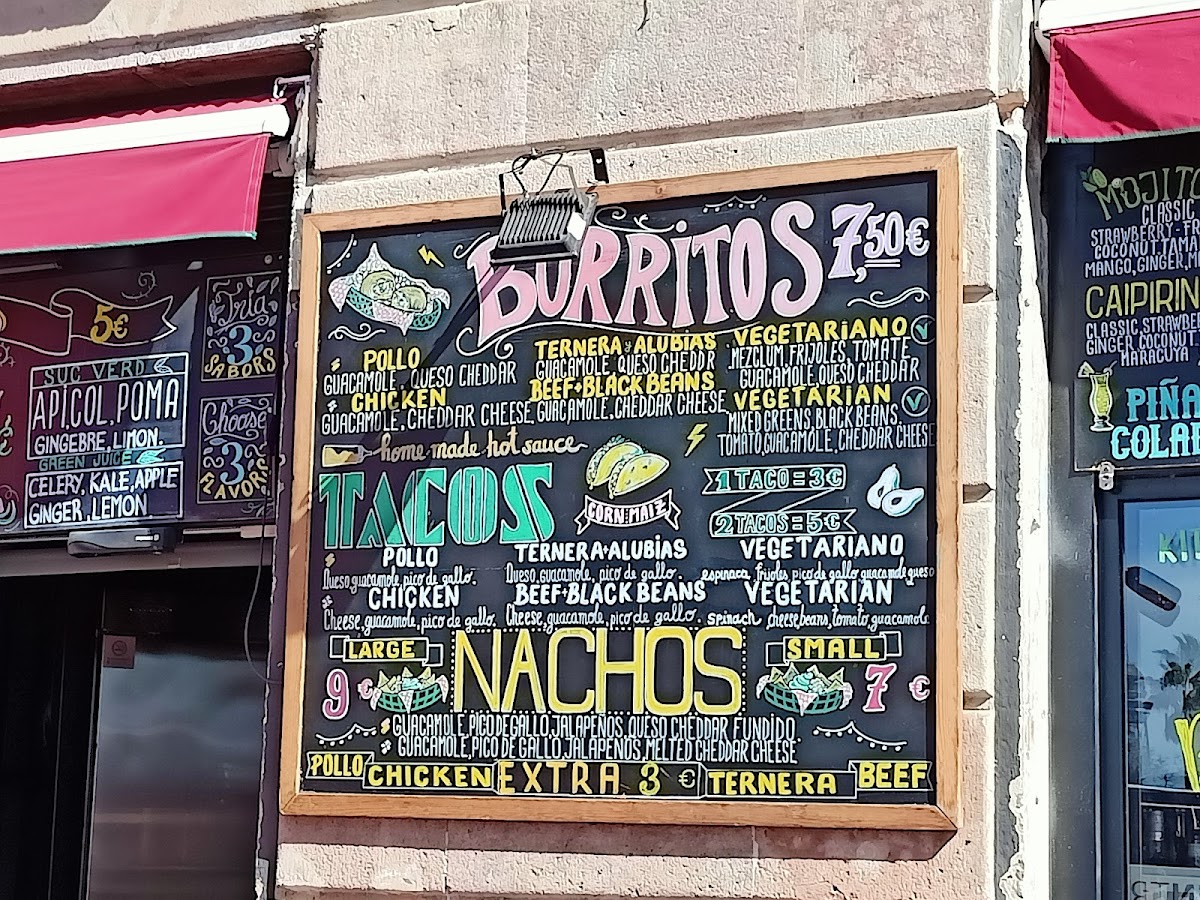 5€
Tria
3
SABORS
SUC VERD
API,COL,POMA
GINGEBRE, LIMON.
GREEN JUICE
CELERY, KALE, APPLE
GINGER, LEMON
Choose
3
FLAVORS
BURRITOS 7,50€
POLLO
GUACAMOLE, QUESO CHEDDAR
CHICKEN
GUACAMOLE, CHEDDAR CHEESE
TERNERA y ALUBIAS
GUACAMOLE, QUESO CHEDDR
BEEF+BLACK BEANS
GUACAMOLE, CHEDDAR CHEESE
VEGETARIANO
MEZCLUM, FRIJOLES, TOMATE
GUACAMOLE, QUESO CHEDDAR
VEGETARIAN
MIXED GREENS, BLACK BEANS,
TOMATO, GUACAMOLE, CHEDDAR CHEESE
home made hot sauce
TACOS
CORN MAIZ
1 TACO = 3€
2 TACOS = 5€
POLLO
Queso, guacamole, pico de gallo.
CHICKEN
Cheese, guacamole, pico de gallo.
TERNERA+ALUBIAS
Queso, guacamole, pico de gallo.
BEEF+BLACK BEANS
Cheese, guacamole, pico de gallo.
VEGETARIANO
espinaca, frjoles, pico de gallo, guacamole, queso
VEGETARIAN
spinach, cheese, beans, tomato, guacamole
LARGE
9 €
NACHOS
SMALL
7 €
GUACAMOLE, PICO DE GALLO, JALAPEÑOS, QUESO CHEDDAR FUNDIDO
GUACAMOLE, PICO DE GALLO, JALAPENOS, MELTED CHEDDAR CHEESE
POLLO CHICKEN EXTRA 3 € TERNERA BEEF
CLASSIC
COCONUT
MANGO, GINGER,
CLASSIC
GINGER, COCONUT
MARACUYA